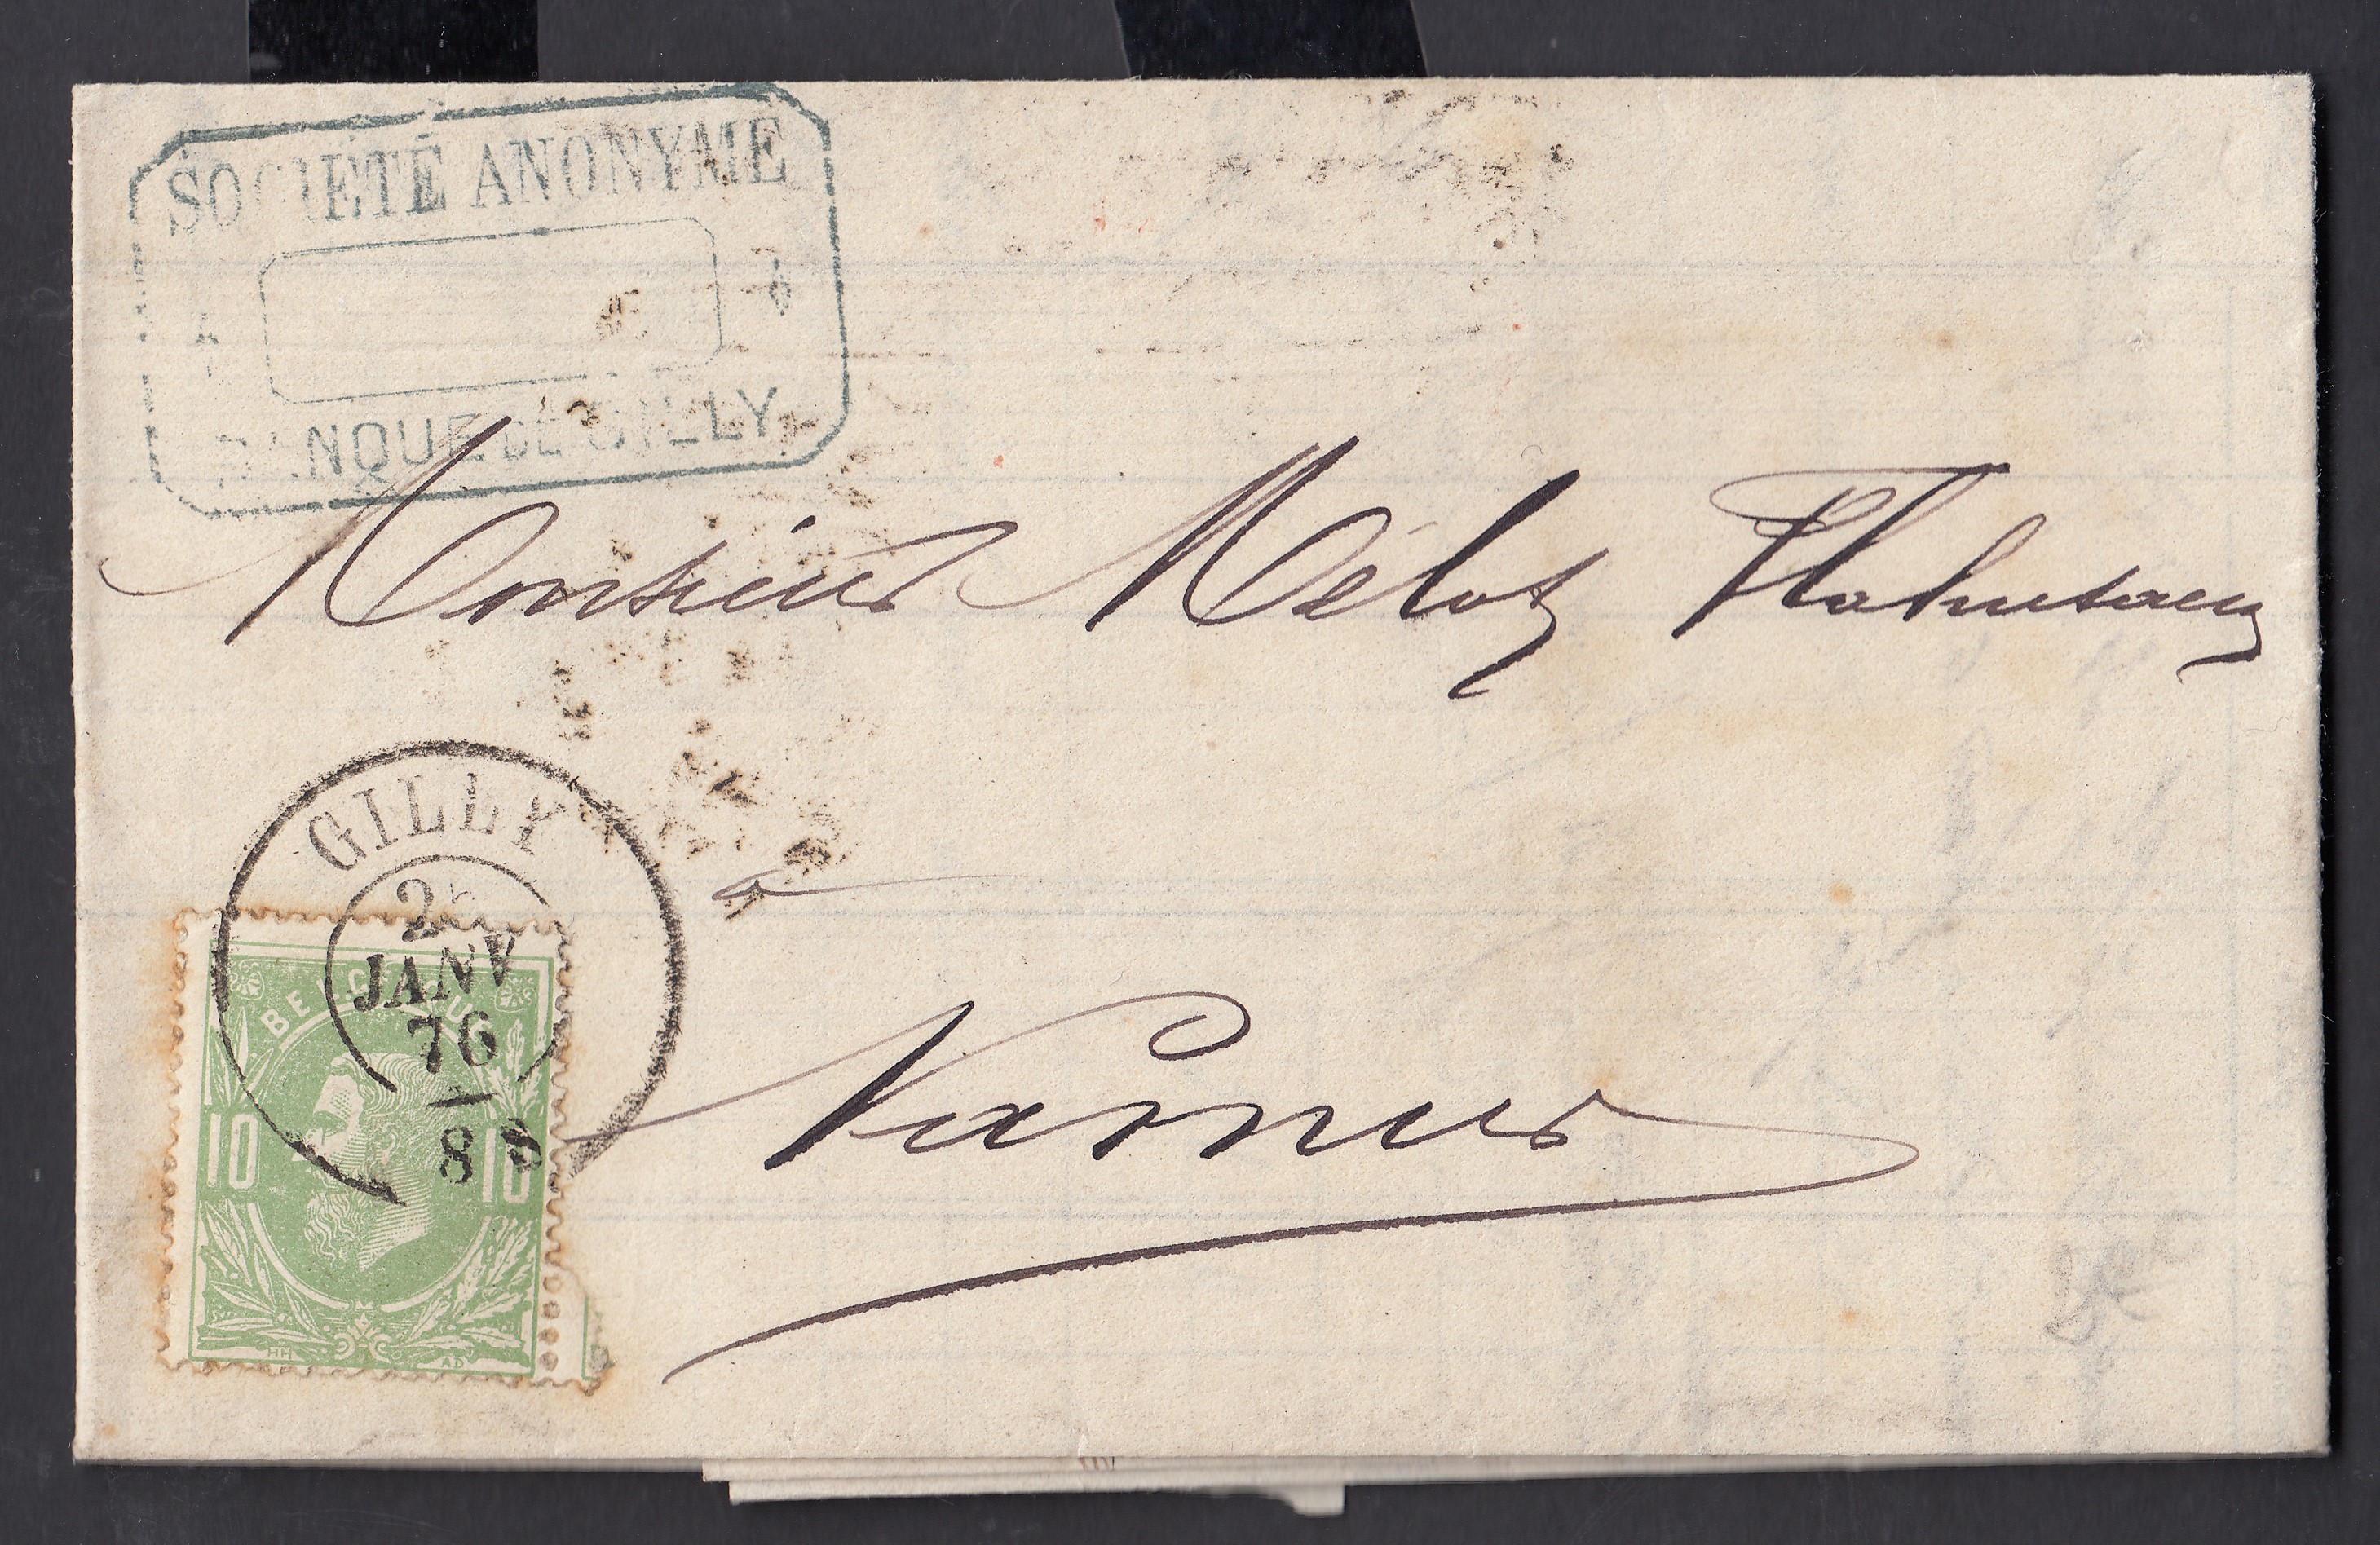 SOCIÉTÉ ANONYME
BANQUE DE GILLY
Monsieur Mélot
à
Namur
GILLY
JANV
76
8
BELGIQUE
10 10
HH. AD